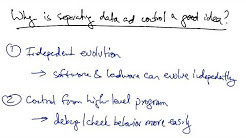 Why is separating data ad control a good idea?
① Independent evolution
→ software & hardware can evolve independently
② Control from high-level program
→ debug/check behavior more easily